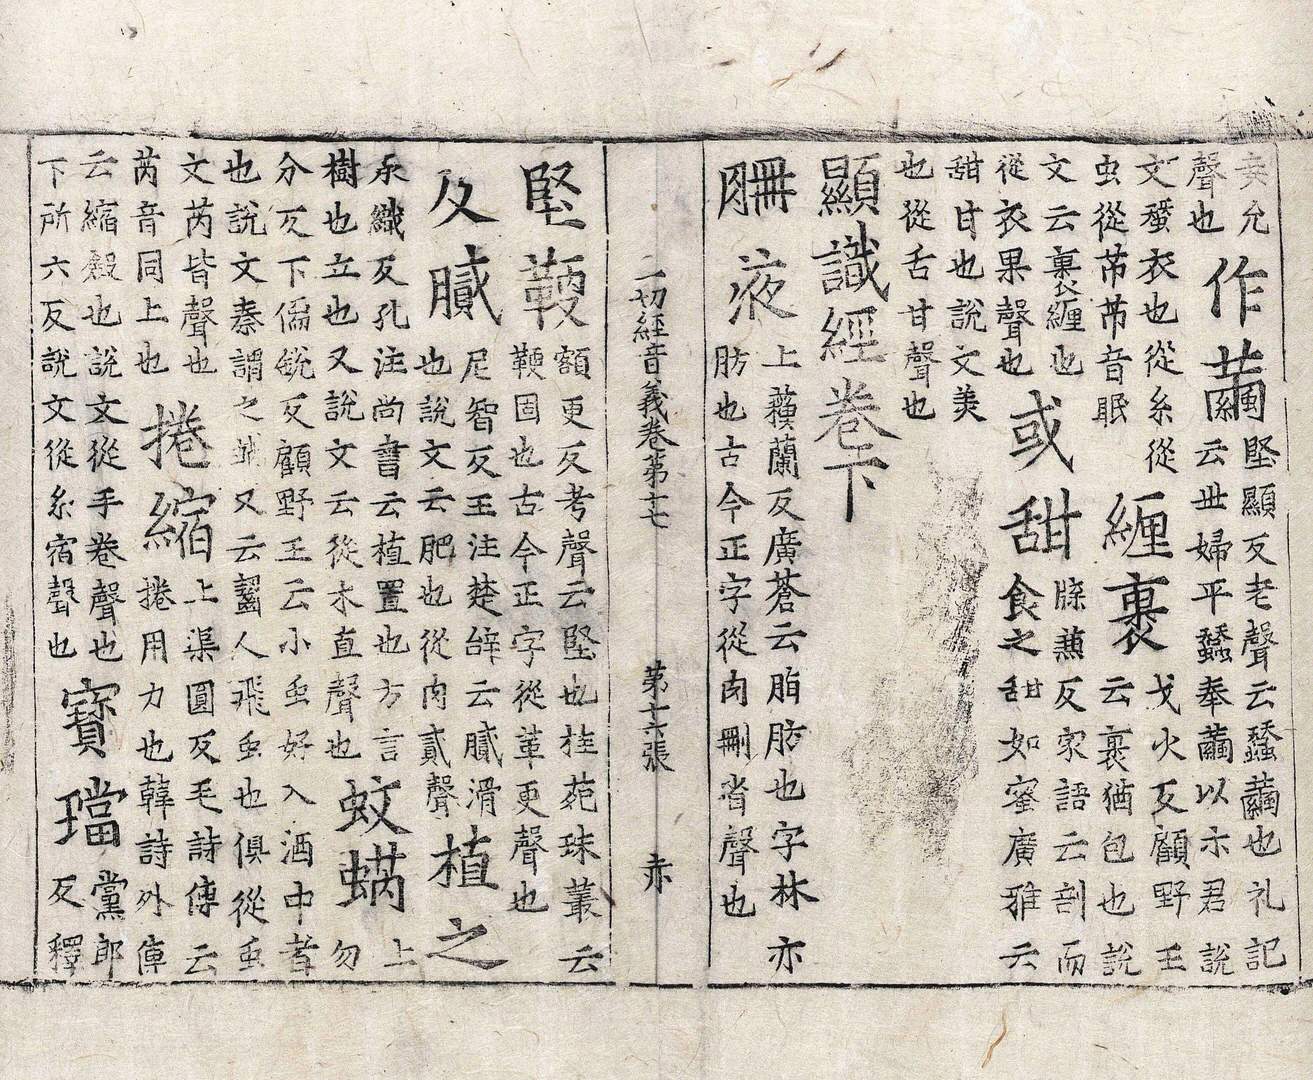 𡨚允
聲也
作繭
堅顯反老聲云蠶繭也礼記
云世婦平蠶奉繭以示君說
文蠒衣也從糸從
虫從芇芇音眠
纏裹
戈火反顧野王
云裹猶包也說
文云裹纏也
從衣果聲也
或甜
牒蕭反家語云剖而
食之甜如蜜廣雅云
甜甘也說文美
也從舌甘聲也
顯識經卷下
𦙱液
上蘱蘭反廣蒼云脂肪也字林亦
肪也古今正字從肉刪省聲也
一切經音義卷第十七
第十六張
赤
堅鞕
額更反考聲云堅也桂苑珠叢云
鞕固也古今正字從革更聲也
及膩
尼智反王注楚辝云膩滑
也說文云肥也從肉貳聲
植之
上
承織反孔注尚書云植置也方言
樹也立也又說文云從木直聲也
蚊蜹
勿
分反下儒銳反顧野王云小䖝好入酒中者
也說文秦謂之蜹又云齧人飛䖝也俱從䖝
文芮皆聲也
芮音同上也
捲縮
上渠圓反毛詩傳云
捲用力也韓詩外傳
云縮殺也說文從手卷聲也
下所六反說文從糸宿聲也
寶璫
黨郎
反釋